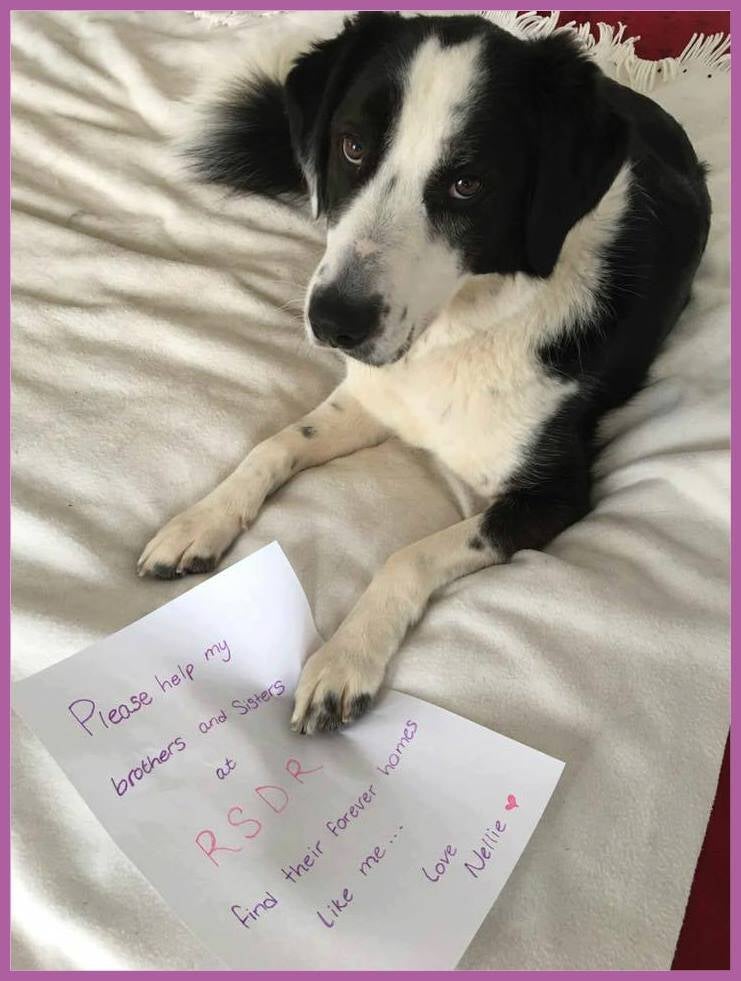 Please help my
brothers and Sisters
at
RSDR
find their forever homes
Like me...
Love
Nellie